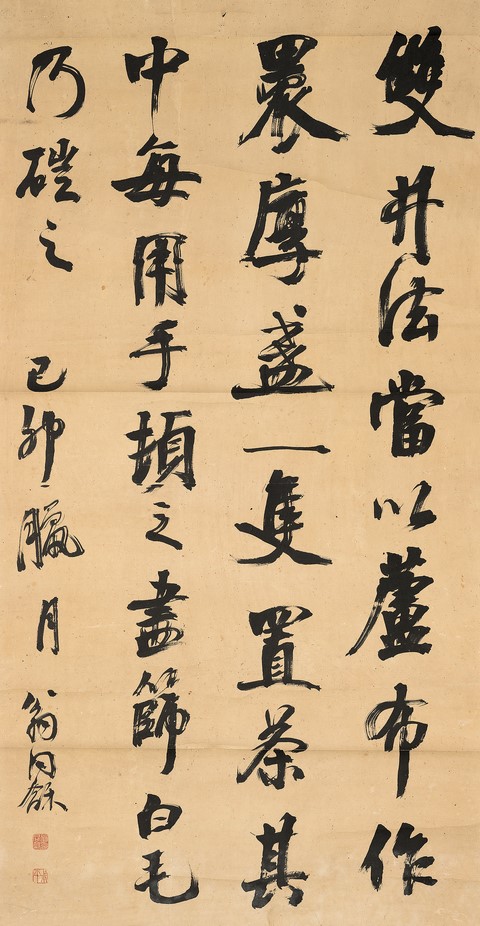 雙井法當以蘆布作
裹厚盞一隻置茶其
中每用手頓之盡篩白毛
乃磑之 己卯臘月 翁同龢